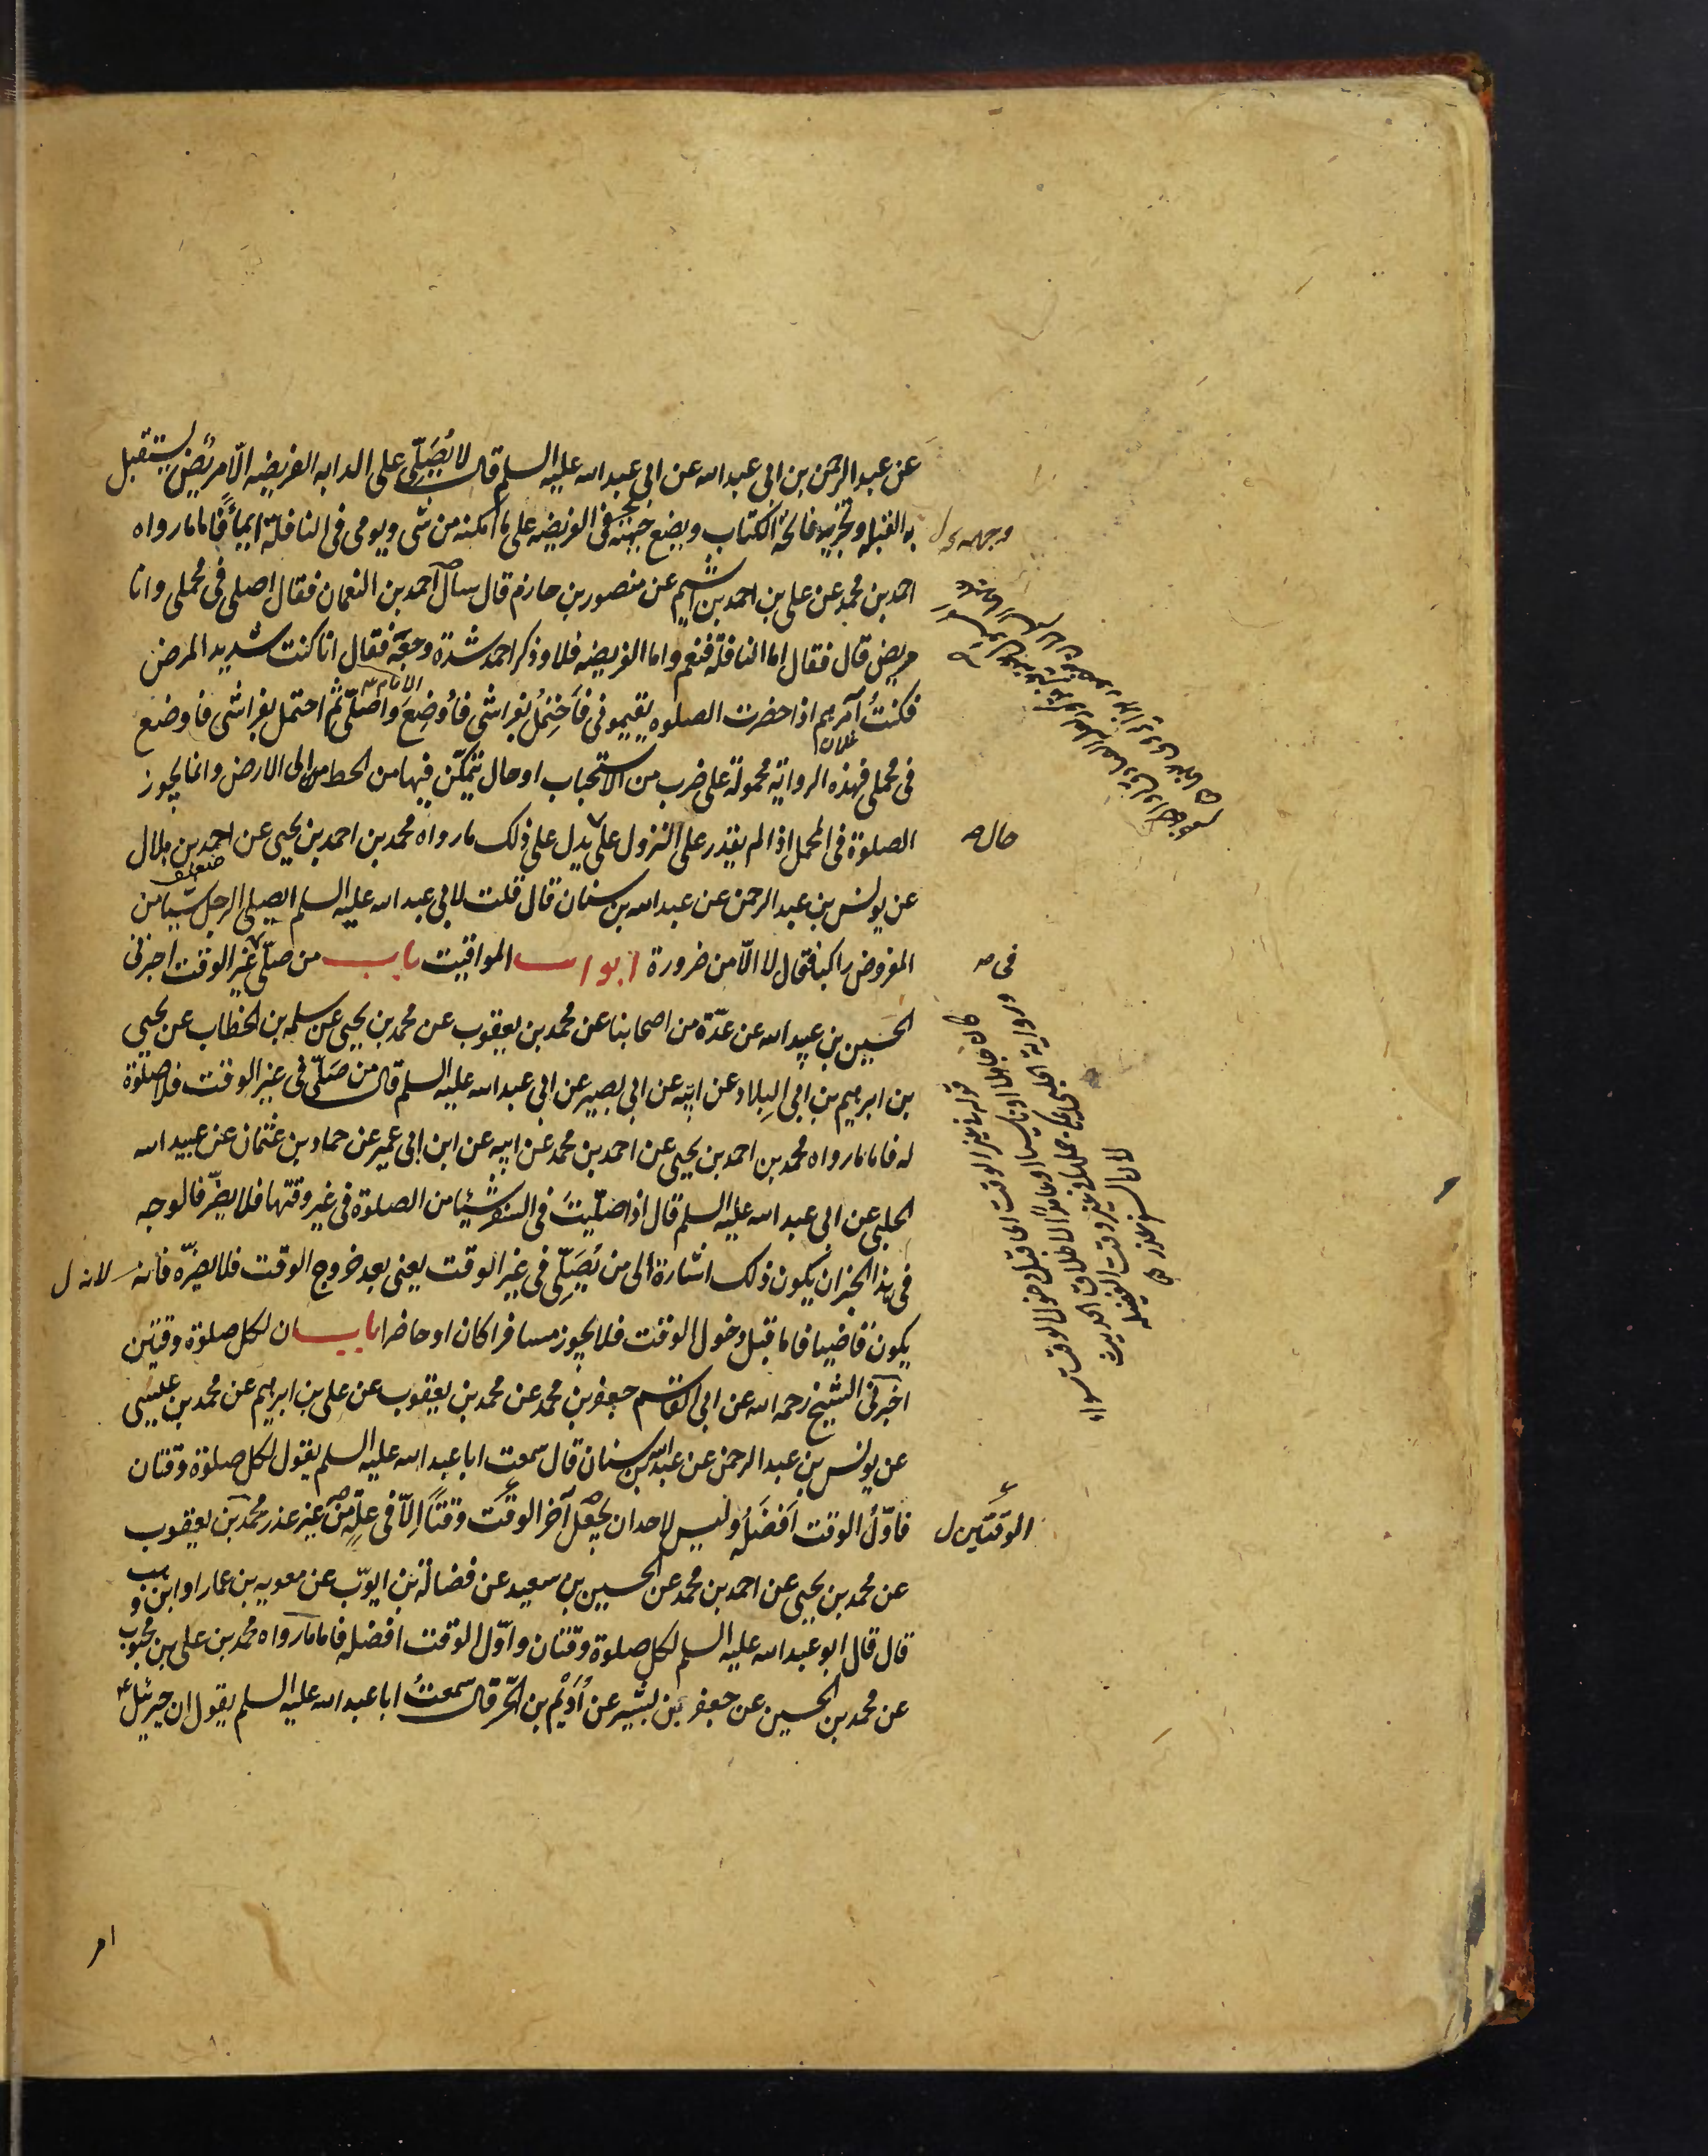 عن عبد الرحمن بن ابى عبد الله عن ابى عبد الله عليه السلم قال لا يُصَلّى على الدابه الفريضه الّا مريضٌ يستقبل
به القبله وتجزيه فاتحة الكتاب ويضع جبهته فى الفريضه على ما امكنه من شى ويومى فى النافلة ايماءً فاما ما رواه
وجهه ل
احمد بن محمد عن على بن احمد بن اشيم عن منصور بن حازم قال سال احمد بن النعمان فقال اصلى فى محملى وانا
مريض قال فقال اما النافلة فنعم واما الفريضه فلا وذكر احمد شدة وجعه فقال انا كنت شديد المرض
فكنتُ آمرهم اذا حضرت الصلوه يقيمونى فاَحتمِلُ بفراشى فاُوضع واصلّى ثم احتمل بفراشى فاوضع
فى محملى فهذه الرواية محمولة على ضرب من الاستحباب او حال تمكّن فيها من الحط من الى الارض وانما يجوز
الصلوة فى المحمل اذا لم يقدر على النزول على يدل على ذلك ما رواه محمد بن احمد بن يحيى عن احمد بن هلال
حال صه
عن يونس بن عبد الرحمن عن عبد الله بن سنان قال قلت لابى عبد الله عليه السلم ايصلى الرجل شيئا من
المفروض راكبا فقال لا الّا من ضرورة ابواب المواقيت باب من صلّى غير الوقت اخبرنى
فى صه
الحسين بن عبيد الله عن عدّة من اصحابنا عن محمد بن يعقوب عن محمد بن يحيى عن سلمه بن الخطاب عن يحيى
بن ابرهيم بن ابى البلاد عن ابيه عن ابى بصير عن ابى عبد الله عليه السلم قال من صَلّى فى غير الوقت فلا صلوة
له فاما ما رواه محمد بن احمد بن يحيى عن احمد بن محمد عن ابيه عن ابن ابى عمير عن حماد بن عثمان عن عبيد الله
الحلبى عن ابى عبد الله عليه السلم قال اذا صلّيتَ فى السفر شيئا من الصلوة فى غير وقتها فلا يضرّ فالوجه
فى هذا الخبر ان يكون ذلك اشارة الى من يُصَلّى فى غير الوقت يعنى بعد خروج الوقت فلا يضرّه فانه
لانه ل
يكون قاضيا فاما قبل دخول الوقت فلا يجوز مسافرا كان او حاضرا باب ان لكل صلوة وقتين
اخبرنى الشيخ رحمه الله عن ابى القاسم جعفر بن محمد عن محمد بن يعقوب عن على بن ابرهيم عن محمد بن عيسى
عن يونس بن عبد الرحمن عن عبد الله بن سنان قال سمعت ابا عبد الله عليه السلم يقول لكل صلوة وقتان
فاوّلُ الوقت اَفضَلُه وليس لاحد ان يجعل آخر الوقت وقتاً اِلّا فى علّةٍ من غير عذر محمد بن يعقوب
الوقتين ل
عن محمد بن يحيى عن احمد بن محمد عن الحسين بن سعيد عن فضالة بن ايوب عن معويه بن عمار او ابن وهب
قال قال ابو عبد الله عليه السلم لكل صلوة وقتان واوّل الوقت افضله فاما ما رواه محمد بن على بن محبوب
عن محمد بن الحسين عن جعفر بن بشير عن اُدَيْم بن الحرّ قال سمعتُ ابا عبد الله عليه السلم يقول ان جبرئيل